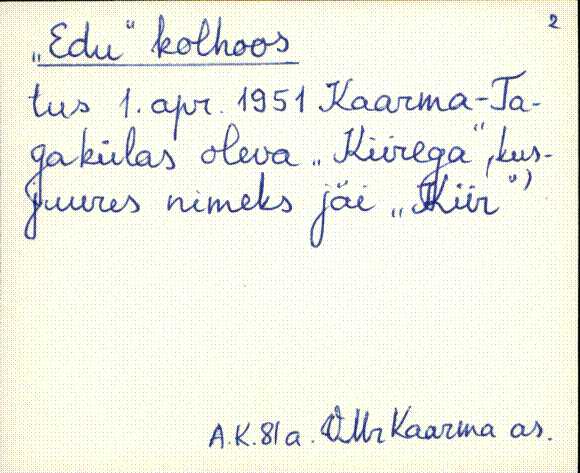 2
„Edu“ kolhoos
tus 1. apr. 1951 Kaarma-Ta-
gakülas oleva „Kiirega“, kus-
juures nimeks jäi „Kiir“)
A.K. 81a. Kaarma as.